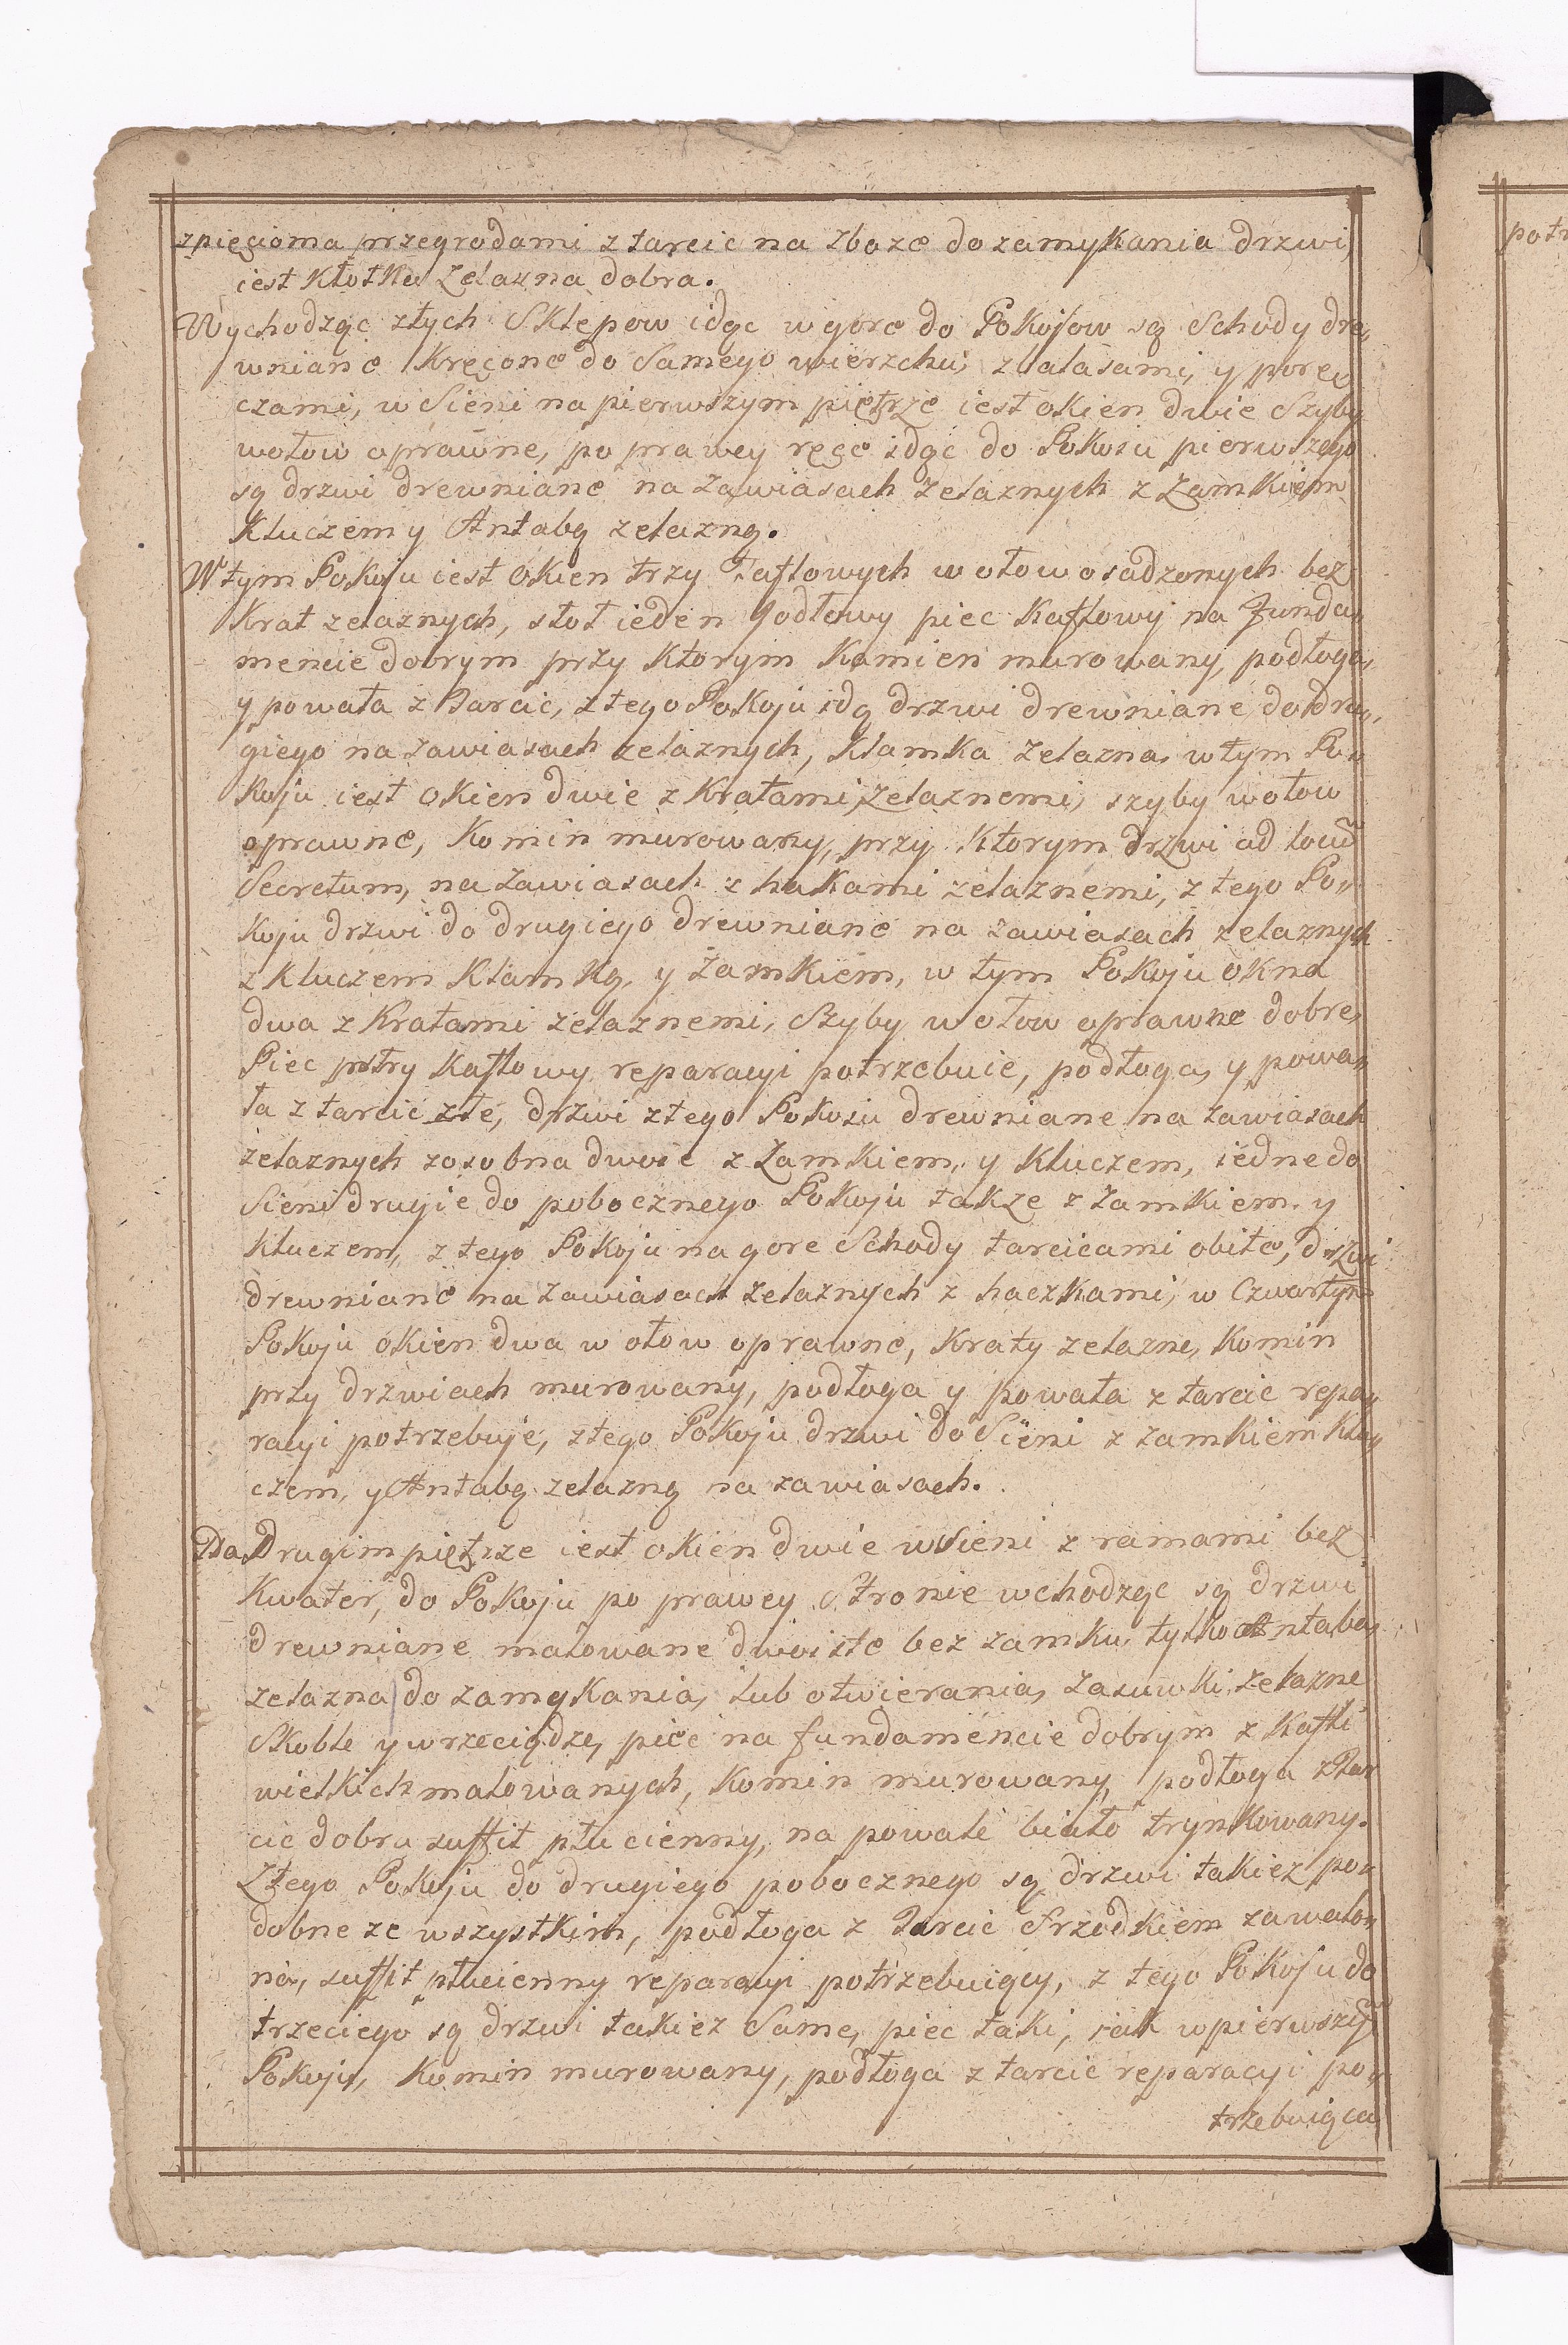 z pięcioma przegrodami z tarcic na zboze do zamykania drzwi,
iest Kłotka Zelazna dobra.
Wychodząc z tych Sklepow idąc w gore do Pokojow są Schody dre,,
wniane Kręcone do Samego wierzchu, z balasami, y porę,,
czami, w Sieni na pierwszym piętrze iest okien dwie Szyby
w ołow oprawne, po prawey ręce idąc do Pokoiu pierwszego
są drzwi drewniane na zawiasach zelaznych z Zamkiem
Kluczem y Antabą zelazną.
W tym Pokoju iest Okien trzy Taflowych w ołow osadzonych bez
Krat zelaznych, stoł ieden Jodłowy piec Kaflowy na Funda,,
mencie dobrym przy Ktorym Komien murowany, podłoga,
y powała z Tarcic, z tego Pokoju idą drzwi drewniane do dru,,
giego na zawiasach zelaznych, Klamka Zelazna, w tym Po,,
Koju iest Okien dwie z Kratami, zelaznemi, szyby w ołow
oprawne, Komin murowany, przy Ktorym drzwi ad locũ
Secretum, na zawiasach z hakami zelaznemi, z tego Po,,
koju drzwi do drugiego drewniane na zawiasach zelaznych
z Kluczem Klamką, y Zamkiem, w tym Pokoju Okna
dwa z Kratami zelaznemi, Szyby w ołow oprawne dobre,
Piec pstry Kaflowy reparacyi potrzebuie, podłoga, y powa,,
ła z tarcic złe, drzwi z tego Pokoiu drewniane na zawiasach
zelaznych zosobna dwoie z Zamkiem, y Kluczem, iedne do
Sieni drugie do pobocznego Pokoju takze z zamkiem y
Kluczem, z tego Pokoju na gore Schody tarcicami obite, drzwi
drewniane na zawiasach zelaznych z haczkami, w Czwartym
Pokoju okien dwa w ołow oprawne, Kraty zelazne, Komin
przy drzwiach murowany, podłoga y powała z tarcic repa,,
racyi potrzebuje, z tego Pokoju drzwi do Sieni z zamkiem Klu,,
czem, y Antabą zelazną na zawiasach.
Na Drugim piętrze iest okien dwie w Sieni z ramami bez
Kwater, do Pokoju po prawey Stronie wchodząc są drzwi
drewniane malowane dwoiste bez zamku, tylko Antaba,
zelazna do zamykania, lub otwierania, zasuwki zelazne
Skoble y wrzeciądze, piec na fundamencie dobrym z Kafli
wielkich malowanych, Komin murowany, podłoga z Tar
cic dobra suffit płucienny, na powale biało trynkowany.
Z tego Pokoju do drugiego pobocznego są drzwi takiez po,,
dobne ze wszystkim, podłoga z Tarcic Srzodkiem zawalo,,
na, suffit płucienny reparacyi potrzebuiący, z tego Pokoju do
trzeciego są drzwi takiez Same, piec taki, iak w pierwszỹ
Pokoju, Komin murowany, podłoga z tarcic reparacyi po,,
trzebuiąca
potr